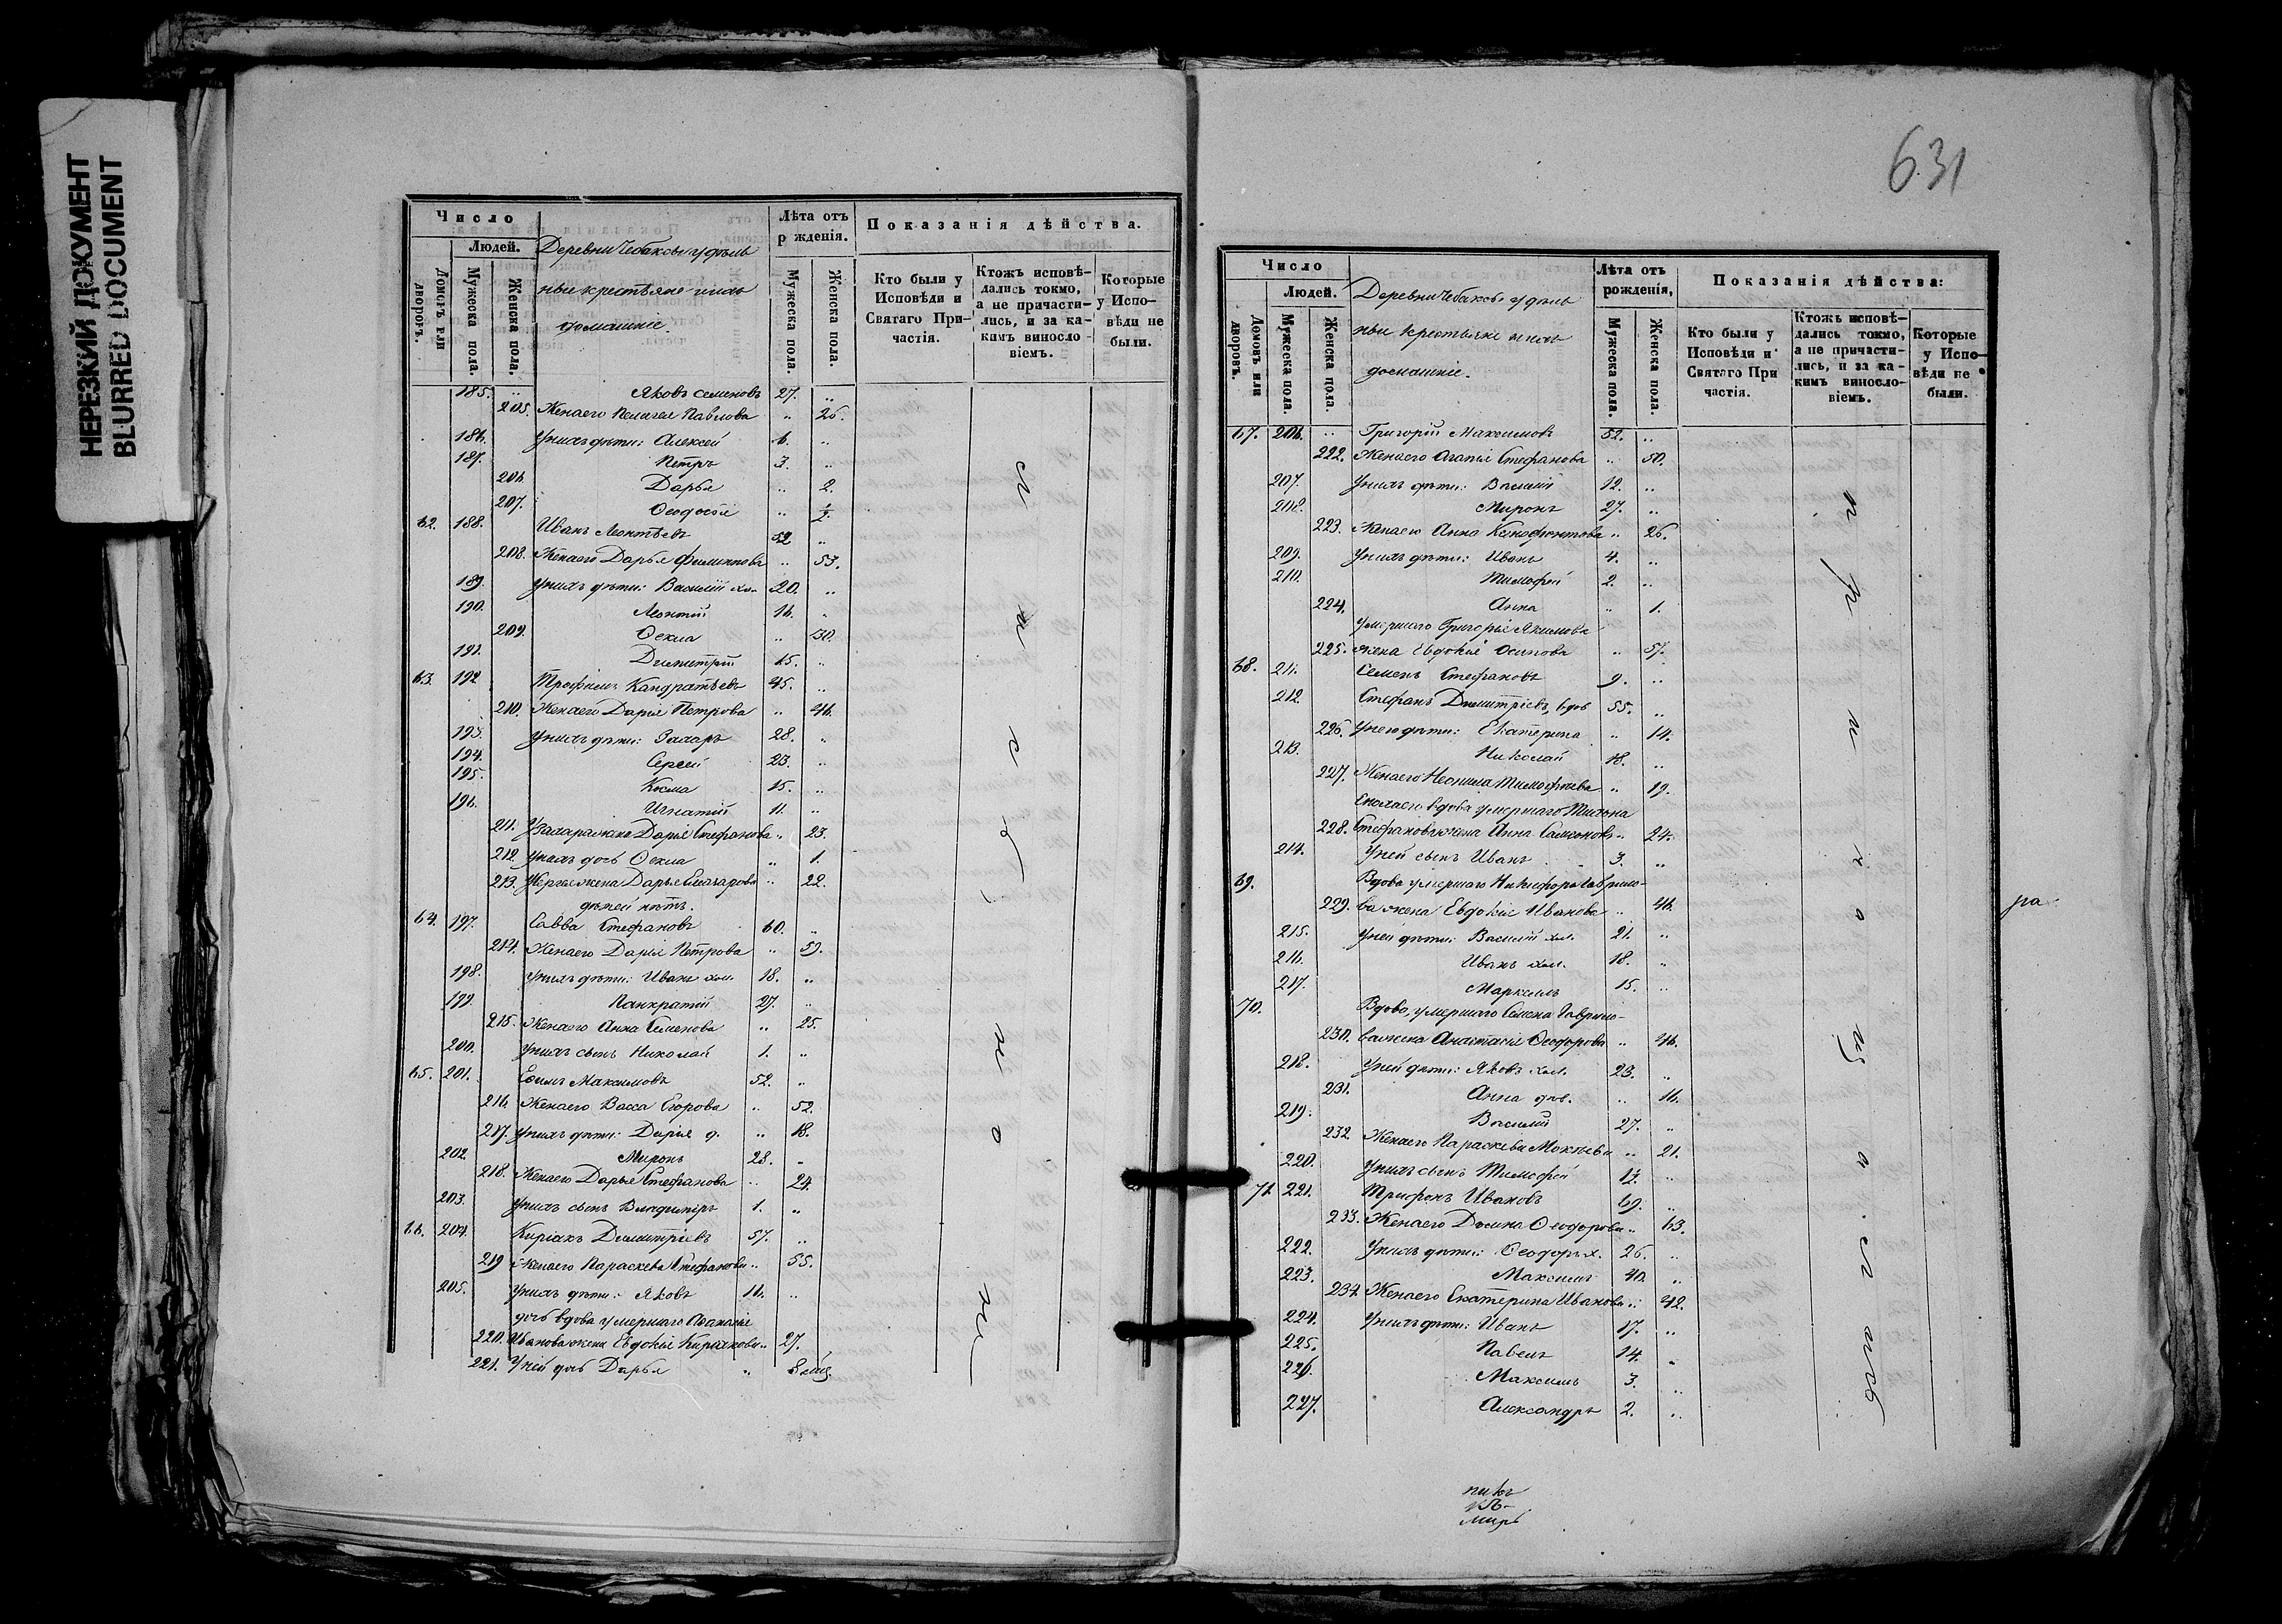 НЕРЕЗКИЙ ДОКУМЕНТ
BLURRED DOCUMENT
Число
Людей.
Домовъ или дворовъ.
Мужеска пола.
Женска пола.
Деревни Чебаксы удѣль
ные крестьяне и ихъ
домашніе.
Лѣта отъ рожденія.
Мужеска пола.
Женска пола.
Показанія дѣйства.
Кто были у Исповѣди и Святаго Причастія.
Ктожъ исповѣдались токмо, а не причастились, и за какимъ винословіемъ.
Которые у Исповѣди не были.
185. Яковъ Семеновъ 27. „
205. Жена его Пелагея Павлова „ 26.
186. У нихъ дѣти: Алексей 6. „
187. Петръ 3. „
206 Дарья „ 2.
207. Ѳеодосія „ ½.
62. 188. Иванъ Леонтьевъ 52 „
208. Жена его Дарья Филиппова „ 53.
189. У нихъ дѣти: Василій хол. 20. „
190. Леонтій 16. „
209. Ѳекла „ 30.
191. Димитрій 15. „
63. 192. Трофимъ Кандратьевъ 45. „
210. Жена его Дарія Петрова „ 46.
193. У нихъ дѣти: Захаръ 28. „
194. Сергей 23. „
195. Косма 15. „
196. Игнатій 11. „
211. У Захара жена Дарія Стефанова „ 23.
212. У нихъ дочь Ѳекла „ 1.
213. У Сергея жена Дарья Елеазарова „ 22.
дѣтей нѣтъ.
64. 197. Савва Стефановъ 60. „
214. Жена его Дарія Петрова „ 59.
198. У нихъ дѣти: Иванъ хол. 18. „
199. Панкратій 27. „
215. Жена его Анна Семенова „ 25.
200. У нихъ сынъ Николай 1. „
65. 201. Ефимъ Максимовъ 52. „
216. Жена его Васса Егорова „ 52.
217. У нихъ дѣти: Дарія д. „ 18.
202. Миронъ 28. „
218. Жена его Дарья Стефанова „ 24.
203. У нихъ сынъ Владиміръ 1. „
66. 204. Киріакъ Димитріевъ 57. „
219 Жена его Параскева Стефанова „ 55.
205. У нихъ дѣти: Яковъ 16. „
дочь вдова умершаго Аѳанасія
220. Иванова жена Евдокія Киріакова „ 27.
221. У ней дочь Дарья „ 8 мѣс.
631
Число
Людей.
Домовъ или дворовъ.
Мужеска пола.
Женска пола.
Деревни Чебаксы удѣль
ные крестьяне и ихъ
домашніе.
Лѣта отъ рожденія,
Мужеска пола.
Женска пола.
Показанія дѣйства:
Кто были у Исповѣди и Святаго При частія.
Ктожъ исповѣдались токмо, а не причастились, и за какимъ винословіемъ.
Которые у Исповѣди не были.
67. 206. Григорій Максимовъ 52. „
222. Жена его Агапія Стефанова „ 50.
207. У нихъ дѣти: Василій 12. „
208. Миронъ 27. „
223. Жена его Анна Ксенофонтова „ 26.
209. У нихъ дѣти: Иванъ 4. „
210. Тимофей 2. „
224. Анна „ 1.
умершаго Григорія Якимова
225. жена Евдокія Осипова „ 57.
68. 211. Семенъ Стефановъ 9. „
212. Стефанъ Димитріевъ, вдов 55. „
226. У него дѣти: Екатерина „ 14.
213. Николай 18. „
227. Жена его Неонила Тимофеева „ 19.
вдова умершаго Тихона
228. Стефанова жена Анна Самсонова „ 24.
214. У ней сынъ Иванъ 3. „
69. Вдова умершаго Никифора Гаврило-
229. ва жена Евдокія Иванова „ 46.
215. У ней дѣти: Василій хол. 21. „
216. Иванъ хол. 18. „
217. Маркелъ 15. „
70. Вдова, умершаго Семена Гаврило-
230. ва жена Анастасія Ѳеодорова „ 46.
218. У ней дѣти: Яковъ хол. 23. „
231. Анна дѣв. „ 16.
219. Василій 27. „
232 Жена его Параскева Мокіева „ 21.
220. У нихъ сынъ Тимофей „
71. 221. Трифонъ Ивановъ 69. „
233. Жена его Домна Ѳеодорова „ 63.
222. У нихъ дѣти: Ѳеодоръ х. 26. „
223. Максимъ 40. „
234. Жена его Екатерина Иванова „ 42.
224. У нихъ дѣти: Иванъ 17. „
225. Павелъ 14. „
226. Максимъ 3. „
227. Александръ 2. „
ра